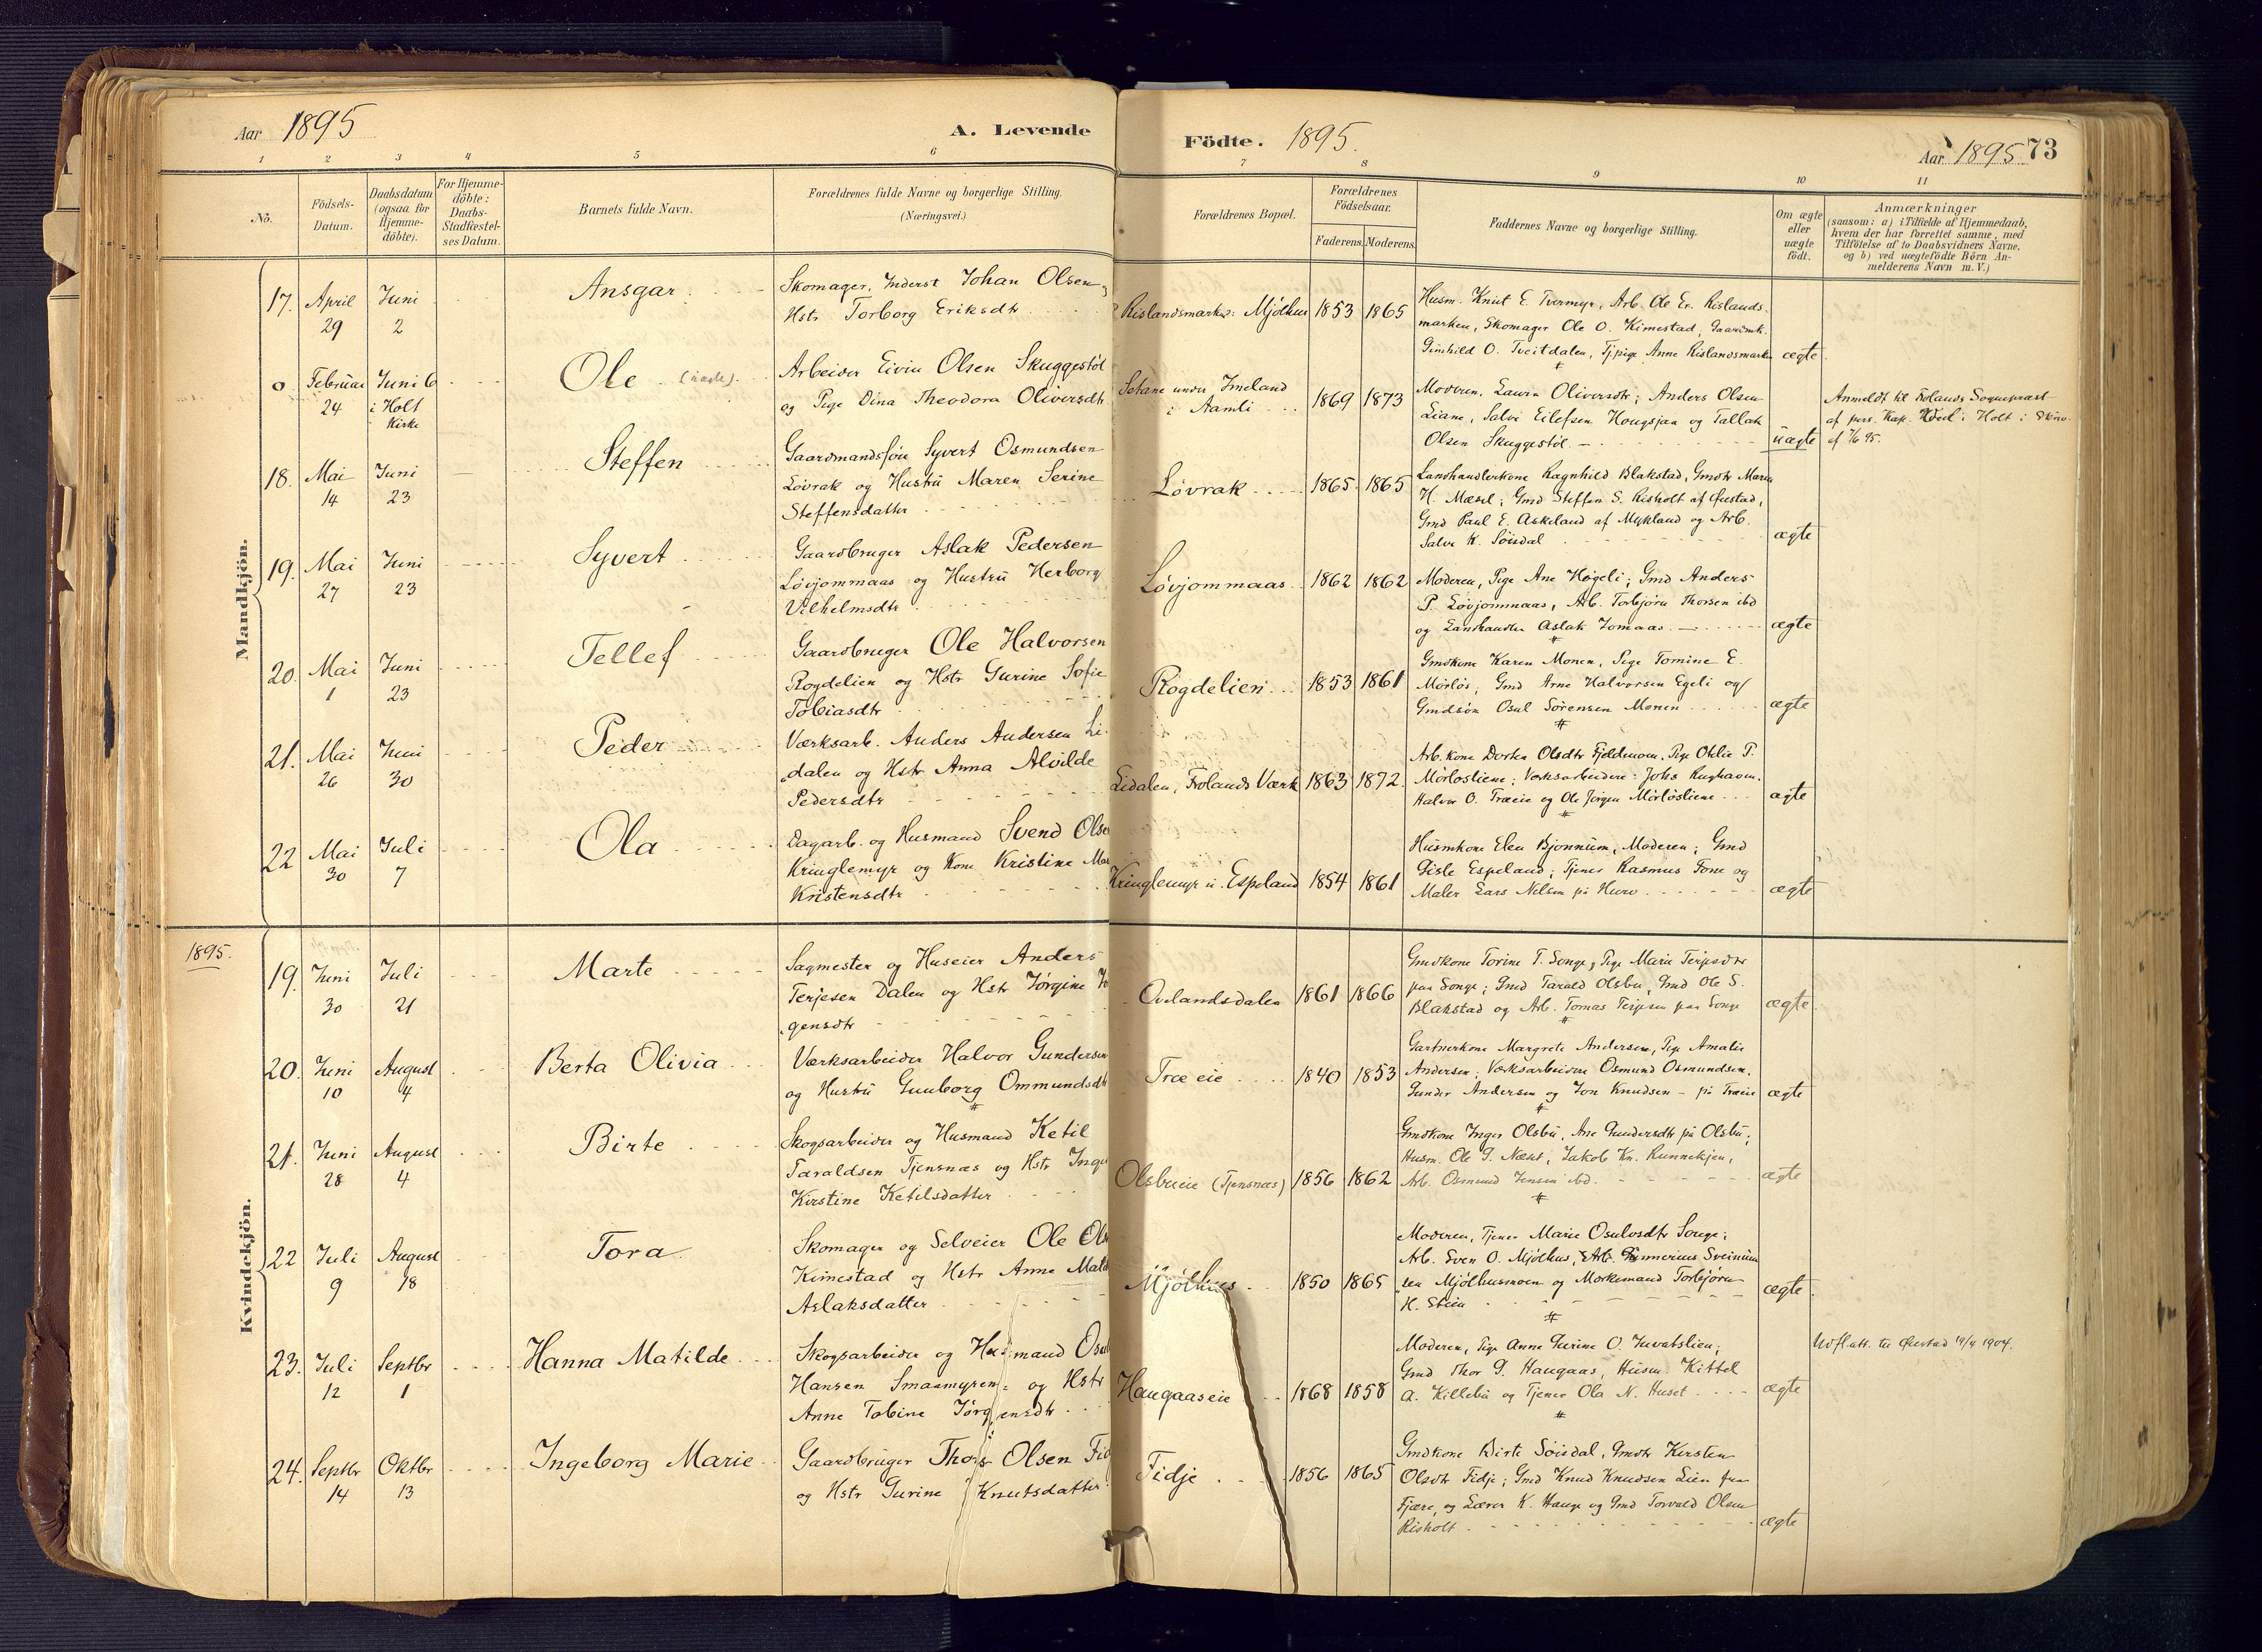 Aar 1895
A. Levende
Födte. 1895.
Aar 1895. 73
1 2 3 4 5 6 7 8 9 10 11
No.
Födsels-
Datum.
Daabsdatum
(ogsaa for
Hjemme-
döbte).
For Hjemme-
döbte:
Daabs-
Stadfæstel-
ses Datum.
Barnets fulde Navn.
Forældrenes fulde Navne og borgerlige Stilling.
(Næringsvei.)
Forældrenes Bopæl.
Forældrenes
Födselsaar.
Faderens. Moderens.
Faddernes Navne og borgerlige Stilling.
Om ægte
eller
uægte
födt.
Anmærkninger
(saasom: a) i Tilfælde af Hjemmedaab,
hvem der har forrettet samme, med
Tilföielse af to Daabsvidners Navne.
og b) ved uægtefödte Börn An-
melderens Navn m. V.)
Mandkjön.
17. April
29
Juni
2
Ansgar
Skomager, Inderst Johan Olsen
Hstr Torborg Eriksdtr
Rislandsmarken: Mjölhus
1853 1865
Husm. Knut E. Tvermyr, Arb. Ole Er. Rislands-
marken, Skomager Ole O. Kimestad, Gaardmk.
Gunhild O. Tveitdalen, Tj.pige Anne Rislandsmarken
ægte
0 Februar
24
Juni 6
i Holt
Kirke
Ole (uægte)
Arbeider Eivin Olsen Skuggestöl
og Pige Dina Theodora Oliversdtr
under Imeland
i Aamli
1869 1873
Moderen, Laura Oliversdtr; Anders Olsen
Liane, Salve Eilefsen Hougsjaa og Tallak
Olsen Skuggestöl
uægte
Anmeldt til Frolands Sogneprest
af pers. Kap. i Holt i Skriv.
af 7/6 95.
18. Mai
14
Juni
23
Steffen
Gaardmandsføn Syvert Osmundsen
Løvrak og Hustrü Maren Serine
Steffensdatter
Løvrak
1865 1865
Landhandlerkone Ragnhild Blakstad, Gmdtr Maren
H. Mæsel; Gmd Steffen S. Risholt af Øiestad,
Gmd Paul E. Askeland af Mykland og Arb.
Salve K. Søisdal
ægte
19. Mai
27
Juni
23
Syvert
Gaardbruger Aslak Pedersen
Løvjommaas og Hustrü Herborg
Vilhelmsdtr
Løvjommaas
1862 1862
Moderen, Pige Ane Høgeli; Gmd Anders
P. Løvjommaas, Arb. Torbjørn Thorsen ibd
og Landhandler Aslak Jomaas
ægte
20. Mai
1
Juni
23
Tellef
Gaardbruger Ole Halvorsen
Rogdelien og Hstr Gurine Sofie
Tobiasdtr
Rogdelien
1853 1861
Gmdkone Karen Monen, Pige Tomine E.
Mörlös; Gmd Arne Halvorsen Egeli og
Gmdsön Osul Sørensen Monen
ægte
21. Mai
26
Juni
30
Peder
Værksarb. Anders Andersen Li-
dalen og Hstr Anna Alvilde
Pedersdtr
Lidalen, Frolands Værk
1863 1872.
Arb.kone Dorthea Olsdtr Fjeldmoen, Pige Othlie T.
Mörlösliene; Værksarbeidere: Johs Rughaven,
Halvor O. Træeie og Ole Jörgen Mörlösliene
ægte
22 Mai
30
Juli
7
Ola
Dagarb. og Husmand Svend Olsen
Kringlemyr og Kone Kristine Mar
Kristensdtr
Kringlemyr u. Espeland
1854 1861
Husmkone Elen Bjonnum, Moderen; Gmd
Gisle Espeland; Tjener Rasmus Tone og
Maler Lars Nilsen på Hurv
ægte
1895.
Kvindekjön.
19. Juni
30
Juli
21
Marte
Sagmester og Huseier Anders
Terjesen Dalen og Hstr Jørgine Jø
gensdtr
Ovelandsdalen
1861 1866
Gmdkone Torine T. Songe, Pige Marie Terjesdtr
paa Songe; Gmd Tarald Olsbu, Gmd Ole S.
Blakstad og Arb. Tomas Terjesen paa Songe
ægte
20. Juni
10
August
4
Berta Olivia
Værksarbeider Halvor Gundersen
og Hustrü Gunborg Ommundsdtr
Træeie
1840 1853
Gartnerkone Margrete Andersen, Pige Amalie
Andersen; Værksarbeidere Osmund Osmundsen,
Gunder Andersen og Jon Knudsen – på Træeie
ægte
21. Juni
28
August
4
Birte
Skogsarbeider og Husmand Ketil
Taraldsen Tjensnæs og Hstr Inge
Kirstine Ketilsdatter
Olsbueie (Tjensnæs)
1856 1862
Gmdkone Inger Olsbü, Ane Gundersdtr på Olsbü;
Husm. Ole G. Næset, Jakob Kn. Runnekjen,
Arb. Osmund Jensen ibd.
ægte
22 Juli
9
August
18
Tora
Skomager og Selveier Ole Ols
Kimestad og Hstr Anne Male
Aslaksdatter
Mjölhus
1850 1865
Moderen, Tjener Marie Osulvsdtr Songe;
Arb. Sven O. Mjölhus, Arb. Gunnerius Sveinun
sen Mjölhusmoen og Morkemand Torbjörn
H. Stien
ægte
23. Juli
12
Septbr
1
Hanna Matilde
Skogsarbeider og Husmand Osul
Hansen Smaamyren og Hstr
Anne Tobine Jörgensdtr
Haugaaseie
1868 1858
Moderen, Pige Anne Gurine O. Juvatslien;
Gmd Thor G. Haugaas, Husm. Kittel
A. Killebu og Tjener Ola N. Huset
ægte
Udflatt. til Øiestad 19/4 1904.
24. Septbr
14
Oktbr
13
Ingeborg Marie
Gaardbruger Thor Olsen Fid
og Hstr Gurine Knutsdatter
Fidje
1856 1865
Gmdkone Birte Söisdal, Gmdtr Kirsten
Olsdtr Fidje; Gmd Knud Knudsen Lien fra
Fjære, og Lærer K. Hauge og Gmd Torvald Olsen
Risholt
ægte